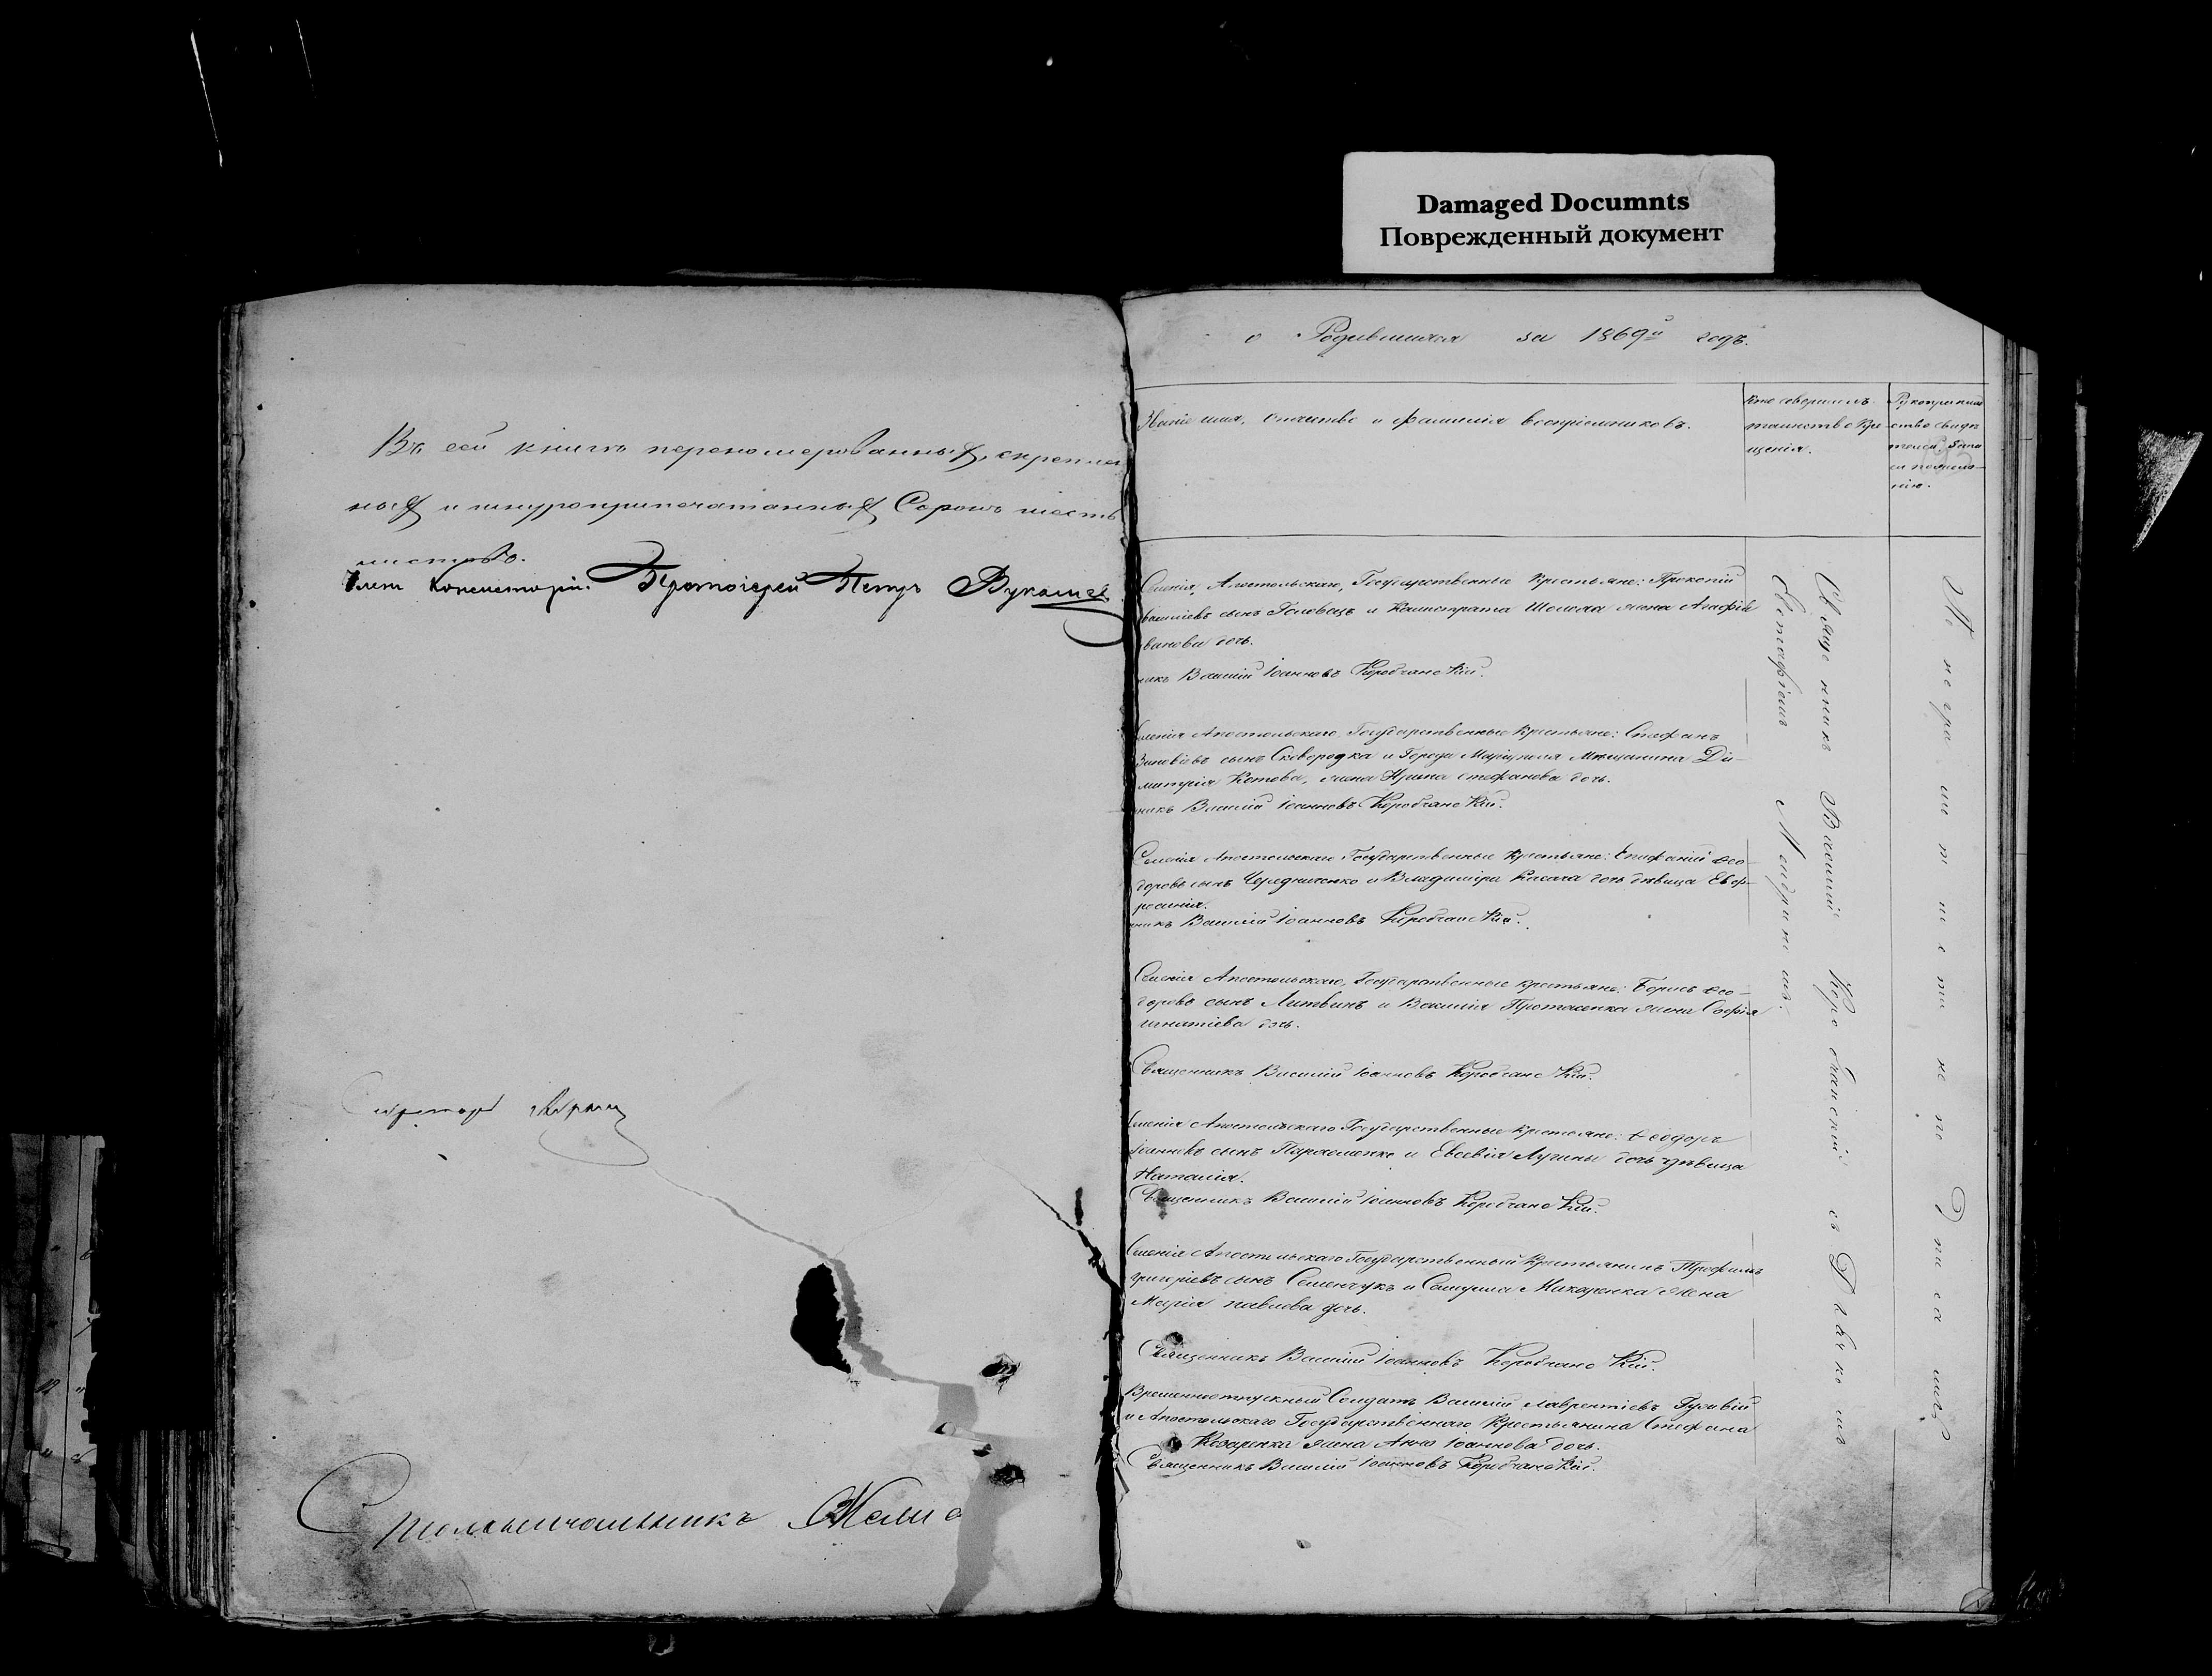 Damaged Documnts
Поврежденный документ
Въ сей книгѣ переномерованныхъ, скреплен
ныхъ и шнуроприпечатанныхъ Сорокъ шесть
листовъ.
Членъ Консисторіи Протоіерей Петръ
Секретарь
Столоначальникъ
о Родившихся за 1869й годъ.
Званіе имя, отчество и фамилія воспріемниковъ.
Кто совершилъ
таинство Кре
щенія.
Рукоприклад
ство свидѣ
телей записи
по желанію.
Селенія, Апостольскаго, Государственные Крестьяне: Прокопій
сынъ Головецъ и Калистрата жена Агафія
ванова дочь.
никъ Василій Іоанновъ Коробчанскій.
еленія Апостольскаго Государственные Крестьяне: Стефанъ
Зиновіевъ сынъ Сковородка и Города Маріуполя Мѣщанина Ди-
митрія Котова, жена Ирина стефанова дочь.
никъ Василій Іоанновъ Коробчанскій.
Селенія Апостольскаго Государственные Крестьяне: Епифаній Ѳео-
доровъ сынъ Чередниченко и Владиміра Касача дочь дѣвица Евф-
росинія.
никъ Василій Іоанновъ Коробчанскій.
Селенія Апостольскаго, Государственные крестьяне: Борисъ Ѳео-
доровъ сынъ Литвинъ и Василія Протасенка жена Софія
игнатіева дочь.
Священникъ Василій Іоанновъ Коробчанскій.
еленія Апостольскаго Государственные Крестьяне: Ѳеодоръ
Іоанновъ сынъ Пархоменко и Евсевія Лучины дочь дѣвица
Наталія.
Священникъ Василій Іоанновъ Коробчанскій.
Селенія Апостольскаго Государственный Крестьянинъ Трофимъ
григоріевъ сынъ Семенчукъ и жена
Марія павлова дочь.
Священникъ Василій Іоанновъ Коробчанскій.
Временноотпускный Солдатъ Василій Лаврентіевъ
и Апостольскаго Государственнаго Крестьянина Стефана
Козаренка жена Анна Іоаннова дочь.
Священникъ Василій Іоанновъ Коробчанскій.
Священникъ Василій Коробчанскій съ Дьячкомъ
Евстафіемъ
По неграмотности не подписались